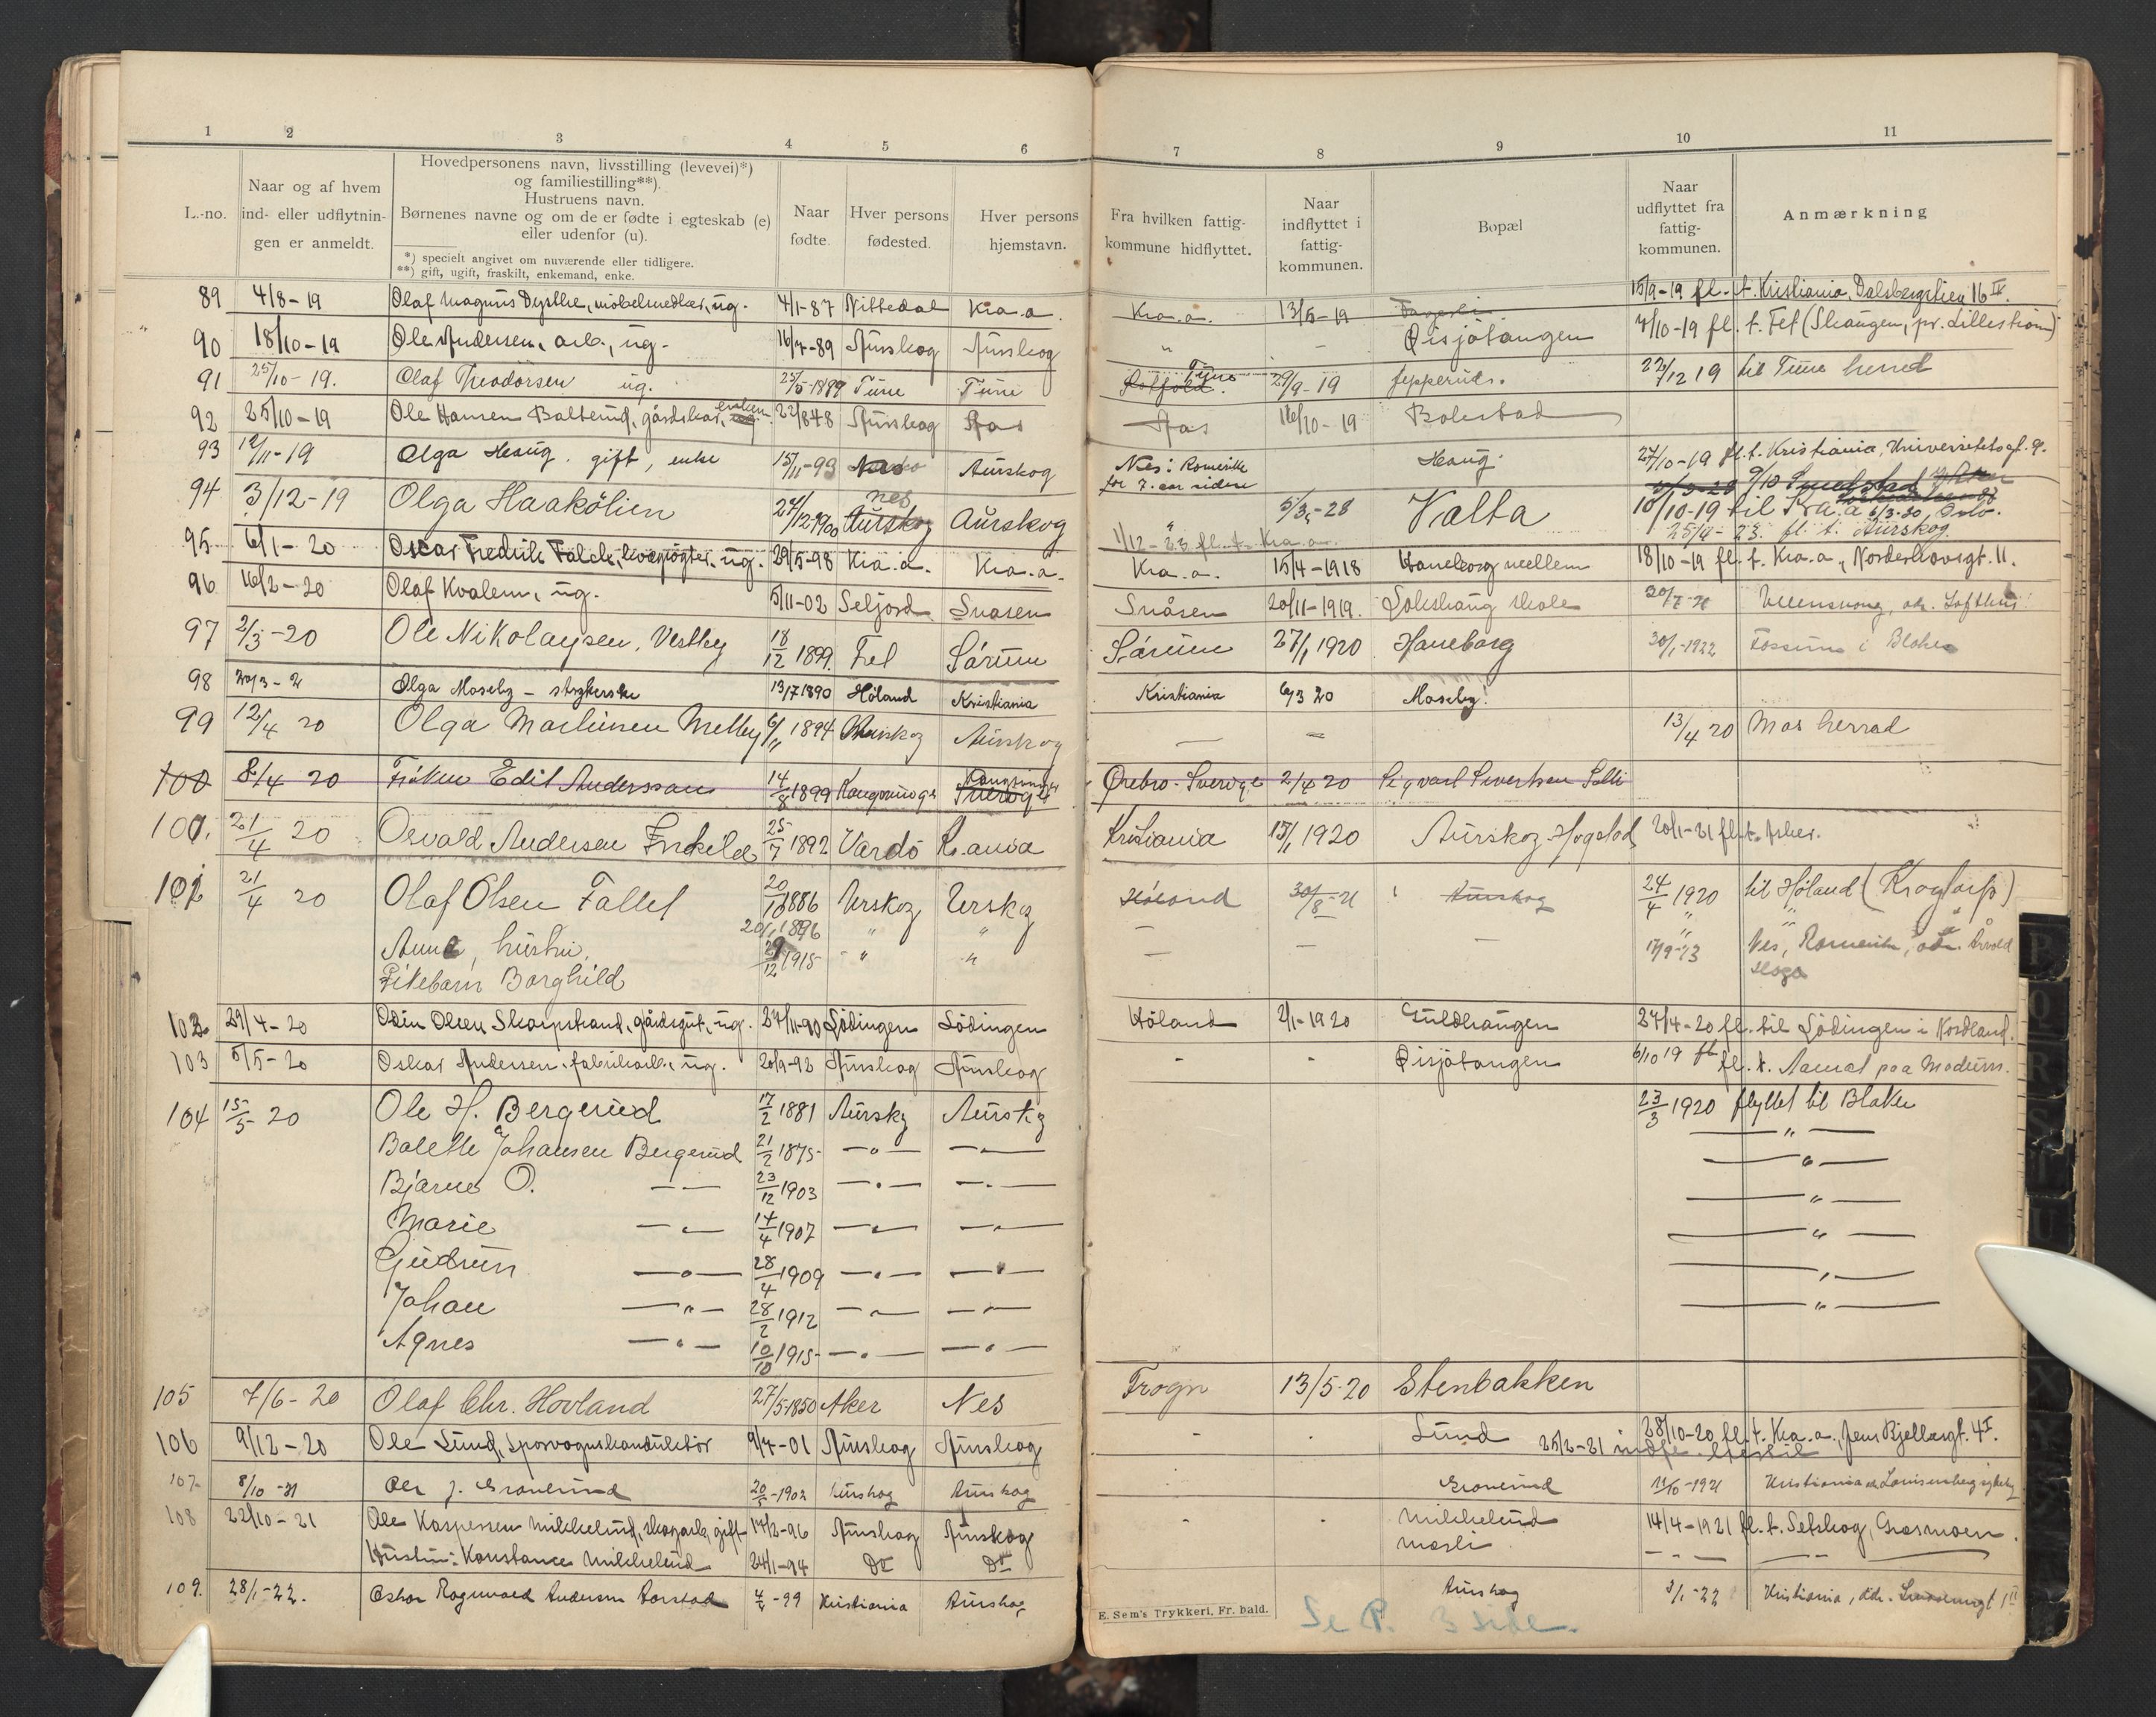 1 2 3 4 5 6 7 8 9 10 11
L.-no.
Naar og af hvem
ind- eller udflytnin-
gen er anmeldt.
Hovedpersonens navn, livsstilling (levevei)*)
og familiestilling**).
Hustruens navn.
Børnenes navne og om de er fødte i egteskab (e)
eller udenfor (u).
*) specielt angivet om nuværende eller tidligere.
**) gift, ugift, fraskilt, enkemand, enke.
Naar
fødte.
Hver persons
fødested.
Hver persons
hjemstavn.
Fra hvilken fattig-
kommune hidflyttet.
Naar
indflyttet i
fattig-
kommunen.
Bopæl
Naar
udflyttet fra
fattig-
kommunen.
Anmærkning
89 4/8-19 Olaf Magnus Dysthe, ug. 4/1-87 Nittedal Kra.a. Kra.a. 13/5-19 15/9-19 fl. t. Kristiania, Dalsbergstien 16 IV.
90 18/10-19 Ole Andersen, arb., ug. 16/7-89 Aurskog Aurskog " - Øisjøtangen 7/10-19 fl. t. Fet (Skangen, pr. Lillestrøm)
91 25/10-19. Olaf Theodorsen ug. 25/5-1889 Tune Tune Tune 29/9-19 Jepperud. 22/12 19 til Tune herred
92 25/10-19 Ole Hansen Balterud, enkem. 22/848 Aurskog Aas Aas 16/10-19 Bolerbad
93 12/11-19 Olga Haug. gift, enke 15/11-93 Aurskog Nes: Romerike for 7. aar siden Haug. 27/10-19 fl. t. Kristiania, Universitetsgt. 9.
94 3/12-19 Olga Haakølien 27/12-1900 nes Aurskog Aurskog " 5/3-28 Valta 10/10-19 til Kra.a 6/3-30, Oslo.
1/12-23 fl. t. Kra.a. 25/9-23. fl. t. Aurskog.
95 6/1-20 Oscar Fredrik Falch, ug. 29/5-98 Kra.a. Kra.a. Kra.a. 15/4-1918 Haneborg mellem 18/10-19 fl. t. Kra.a., Norderhovsgt. 11.
96 16/2-20 Olaf Kvalem, ug. 5/11-02 Seljord Snåsen Snåsen 20/11-1919. Lokshaug skole 20/7-21 Ullensvang, adr. Lofthus
97 2/3-20 Ole Nikolaysen, Vestby 18/12 1899. Fet Sørum Sørum 27/1 1920 Haneborg 30/1-1922 Fossum i Blaker
98 20/3-2 Olga Moseby - strykerske 13/7 1890 Høland Kristiania Kristiania 6/3 20 Moseby!
99 12/4 20 Olga Martinsen Melby 6/11 1894 Aurskog Aurskog - = 13/4 20 Mos herred
100 8/4 20 Frøken Edit Andersson 14/8 1899 Kongsvinger Kongsvinger Sverige Ørebro-Sverige 2/4 20 Sigvart Sivertsen Solli
100. 21/4 20 Osvald Andersen Enkild 25/7 1892 Vardø K.ania Kristiania 15/1 1920 Aurskog-Hogstad 20/1-21 fl. t. Asker.
101 21/4 20 Olaf Olsen Fallet 20/10 1886 Urskog Urskog Høland 30/8-21 Aurskog 24/4 1920 til Høland (Krogtorp)
Anna, hustru. 20/1 1896 " " - - - "
Pikebarn Borghild 29/12 1915 " " - 17/9-23 Nes, Romerike, adr. Årvold
102 29/4-20 Odin Olsen Skarpstrand, gårdsgut, ug. 27/11-90 Lødingen Lødingen Høland 2/1-1920 Guldhaugen 27/4-20 fl. til Lødingen i Nordland.
103 5/5-20 Oskar Andersen, fabrikarb., ug. 20/9-92 Aurskog Aurskog - - Øisjøtangen 6/10 19 fl. t. Aamot paa Modum.
104 15/5 20 Ole H. Bergerud 17/2 1881 Aurskog Aurskog 23/3 1920 flyttet til Blaker
Bolette Johansen Bergerud 21/2 1875 -"- -"- -"-
Bjarne O. -"- 23/12 1903 -"- -"- -"-
Marie -"- 14/4 1907 -"- -"- -"-
Gudrun -"- 28/4 1909 -"- -"- -"-
Johan -"- 28/2 1912 -"- -"- -"-
Agnes -"- 10/10 1915 -"- -"- -"-
105 7/6-20 Olaf Chr. Hovland 27/5-1850 Aker Nes Frogn 13/5-20 Stenbakken
106 9/12-20 Ole Lund, sporvognskonduktør 9/7-01 Aurskog Aurskog - - Lund 28/10-20 fl. t. Kra.a., Jens Bjelkesgt. 4 I.
25/2-21
107. 8/10-21 Ole J. Gronerud 20/5-1902 Aurskog Aurskog Gronerud 11/6-1921 Kristiania
108 22/10-21 Ole Kaspersen Mikkelrud, skogarb, gift 17/2-96 Aurskog Aurskog - - Mikkelrud 14/4-1921 fl. t. Setskog, Grasmoen.
Hustru: Konstance Mikkelrud 24/1-94 Do Do Mosli
109. 28/1-22. Oskar Ragnvald Andersen Aarstad 4/4-99 Kristiania Aurskog Aurskog 3/1-22 Kristiania, adr.
E. Sem's Trykkeri, Fr. hald.
Se P. 3 side.
P
O
R
S
T
U